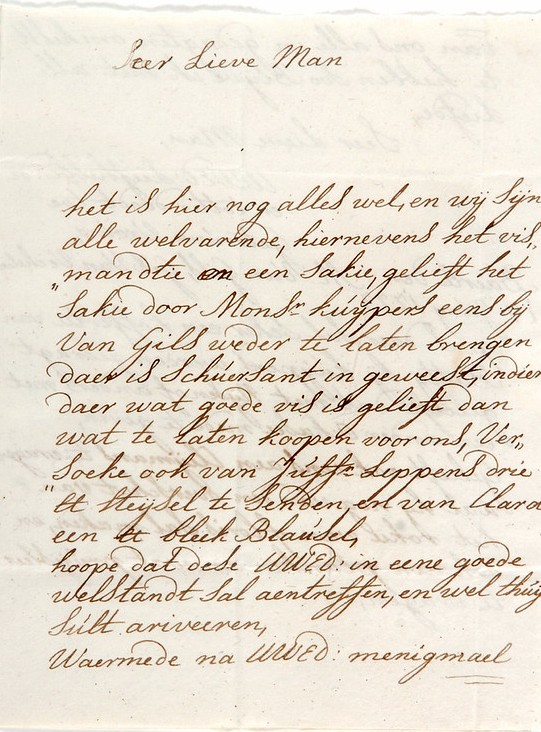 Seer Lieve Man
het is hier nog alles wel, en wij sijn
alle welvarende, hiernevens het vis„
„mandtie en een Sakie, gelieft het
Sakie door Monsr. kúypers eens bij
Van Gils weder te laten brengen
daer is Schúersant in geweest, indien
daer wat goede vis is gelieft dan
wat te laten koopen voor ons, Ver„
„Soeke ook van Júffr. Leppens drie
℔ Steijsel te Senden, en van Clara
een ℔ bleek Blaúsel,
hoope dat dese UWED: in eene goede
welstandt sal aentreffen, en wel thúys
Súlt ariveeren,
Waermede na UWED: menigmael